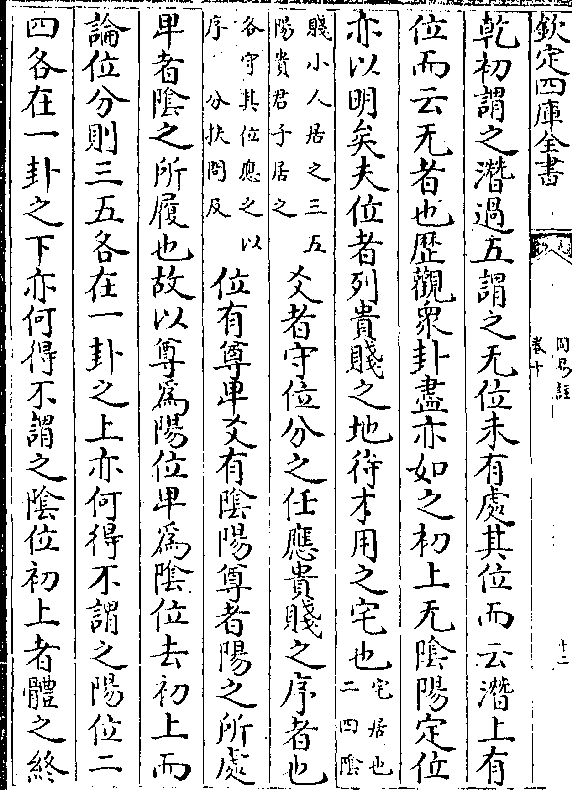 欽定四庫全書
周易註
卷十
十二
乾初謂之潛過五謂之无位未有處其位而云潛上有
位而云无者也歷觀衆卦盡亦如之初上无陰陽定位
亦以明矣夫位者列貴賤之地待才用之宅也
宅居也
二四陰
賤小人居之三五
陽貴君子居之
爻者守位分之任應貴賤之序者也
各守其位應之以
序 分扶問及
位有尊卑爻有陰陽尊者陽之所處
卑者陰之所履也故以尊為陽位卑為陰位去初上而
論位分則三五各在一卦之上亦何得不謂之陽位二
四各在一卦之下亦何得不謂之陰位初上者體之終